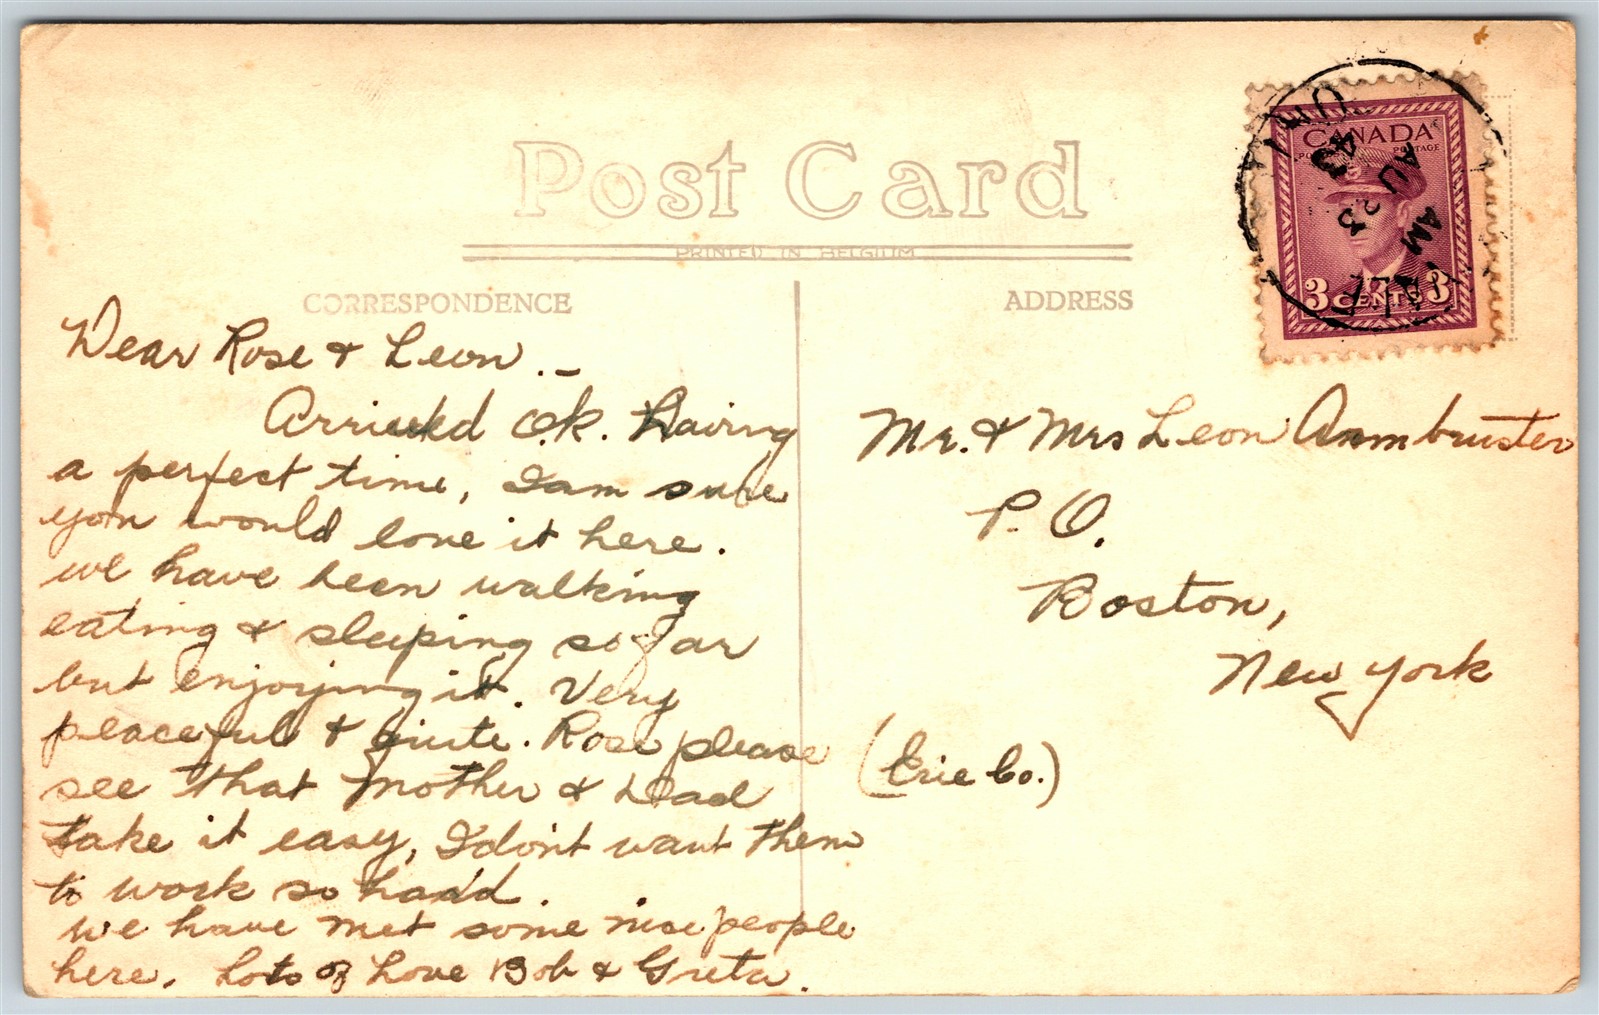 Post Card
PRINTED IN BELGIUM
CORRESPONDENCE
ADDRESS
CANADA
POSTAGE
3 CENTS 3
AM
AU 23
43
ONT
Dear Rose & Leon.—
Arrived O.K. Having
a perfect time, I am sure
you would love it here.
we have been walking
eating & sleeping so far
but enjoying it. Very
peaceful & quite. Rose please
see that Mother & Dad
take it easy, I don't want them
to work so hard.
we have met some nice people
here. Lots of Love Bob & Greta.
Mr. & Mrs Leon Armbruster
P. O.
Boston,
New York
(Erie Co.)